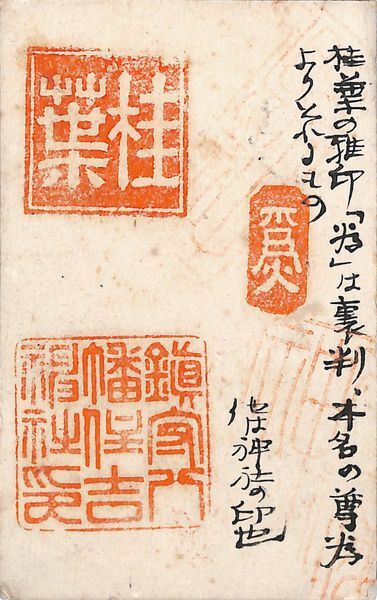 桂葉の雅印「為」は裏判、本名の尊為
よりとれるもの
他は神社の印也
桂葉
為
鎮守八
幡住吉
神社印